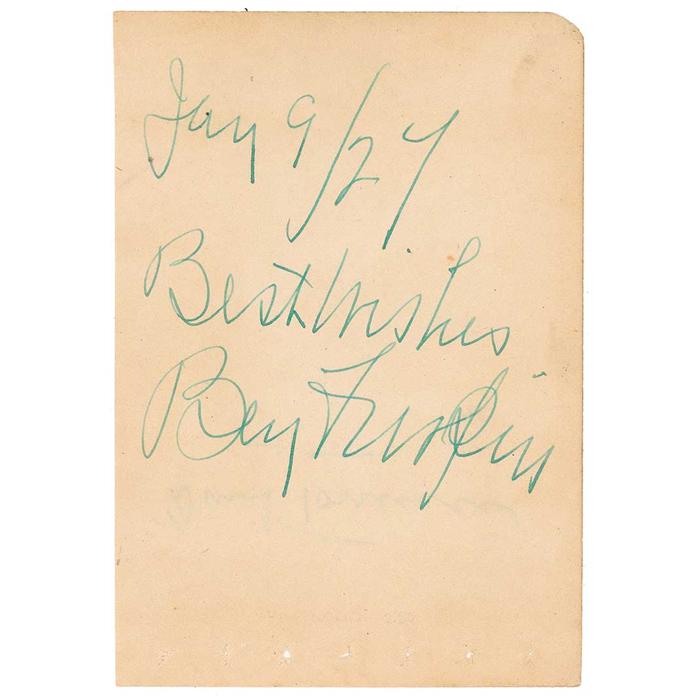 Jan 9/27
Best Wishes
Ben Turpin